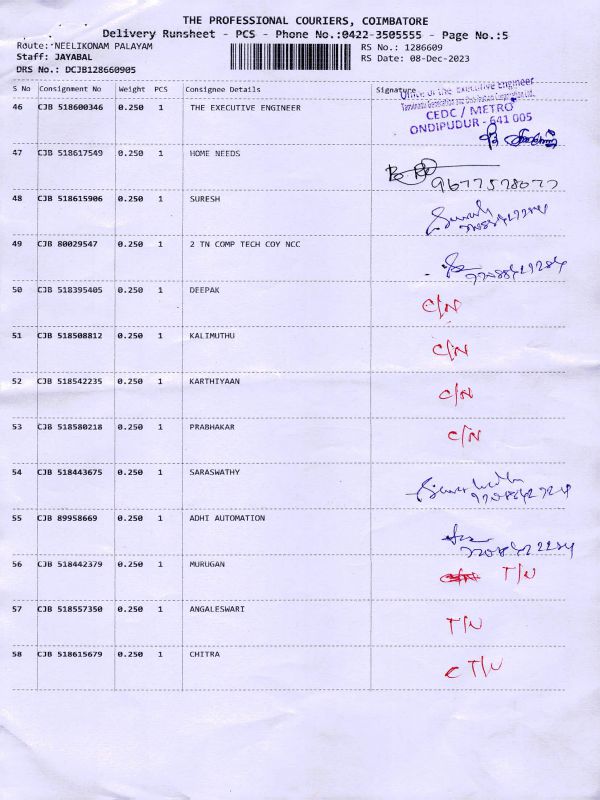 THE PROFESSIONAL COURIERS, COIMBATORE
Delivery Runsheet - PCS - Phone No.:0422-3505555 - Page No.:5
Route: NEELIKONAM PALAYAM RS No.: 1286609
Staff: JAYABAL RS Date: 08-Dec-2023
DRS No.: DCJB128660905
S No Consignment No Weight PCS Consignee Details Signature
Office of the Executive Engineer
46 CJB 518600346 0.250 1 THE EXECUTIVE ENGINEER
CEDC / METRO
ONDIPUDUR - 641 005
47 CJB 518617549 0.250 1 HOME NEEDS
9677578077
48 CJB 518615906 0.250 1 SURESH
49 CJB 80029547 0.250 1 2 TN COMP TECH COY NCC
50 CJB 518395405 0.250 1 DEEPAK C/N
51 CJB 518508812 0.250 1 KALIMUTHU C/N
52 CJB 518542235 0.250 1 KARTHIYAAN C/N
53 CJB 518580218 0.250 1 PRABHAKAR C/N
54 CJB 518443675 0.250 1 SARASWATHY
55 CJB 89958669 0.250 1 ADHI AUTOMATION
56 CJB 518442379 0.250 1 MURUGAN T/N
57 CJB 518557350 0.250 1 ANGALESWARI T/N
58 CJB 518615679 0.250 1 CHITRA T/N